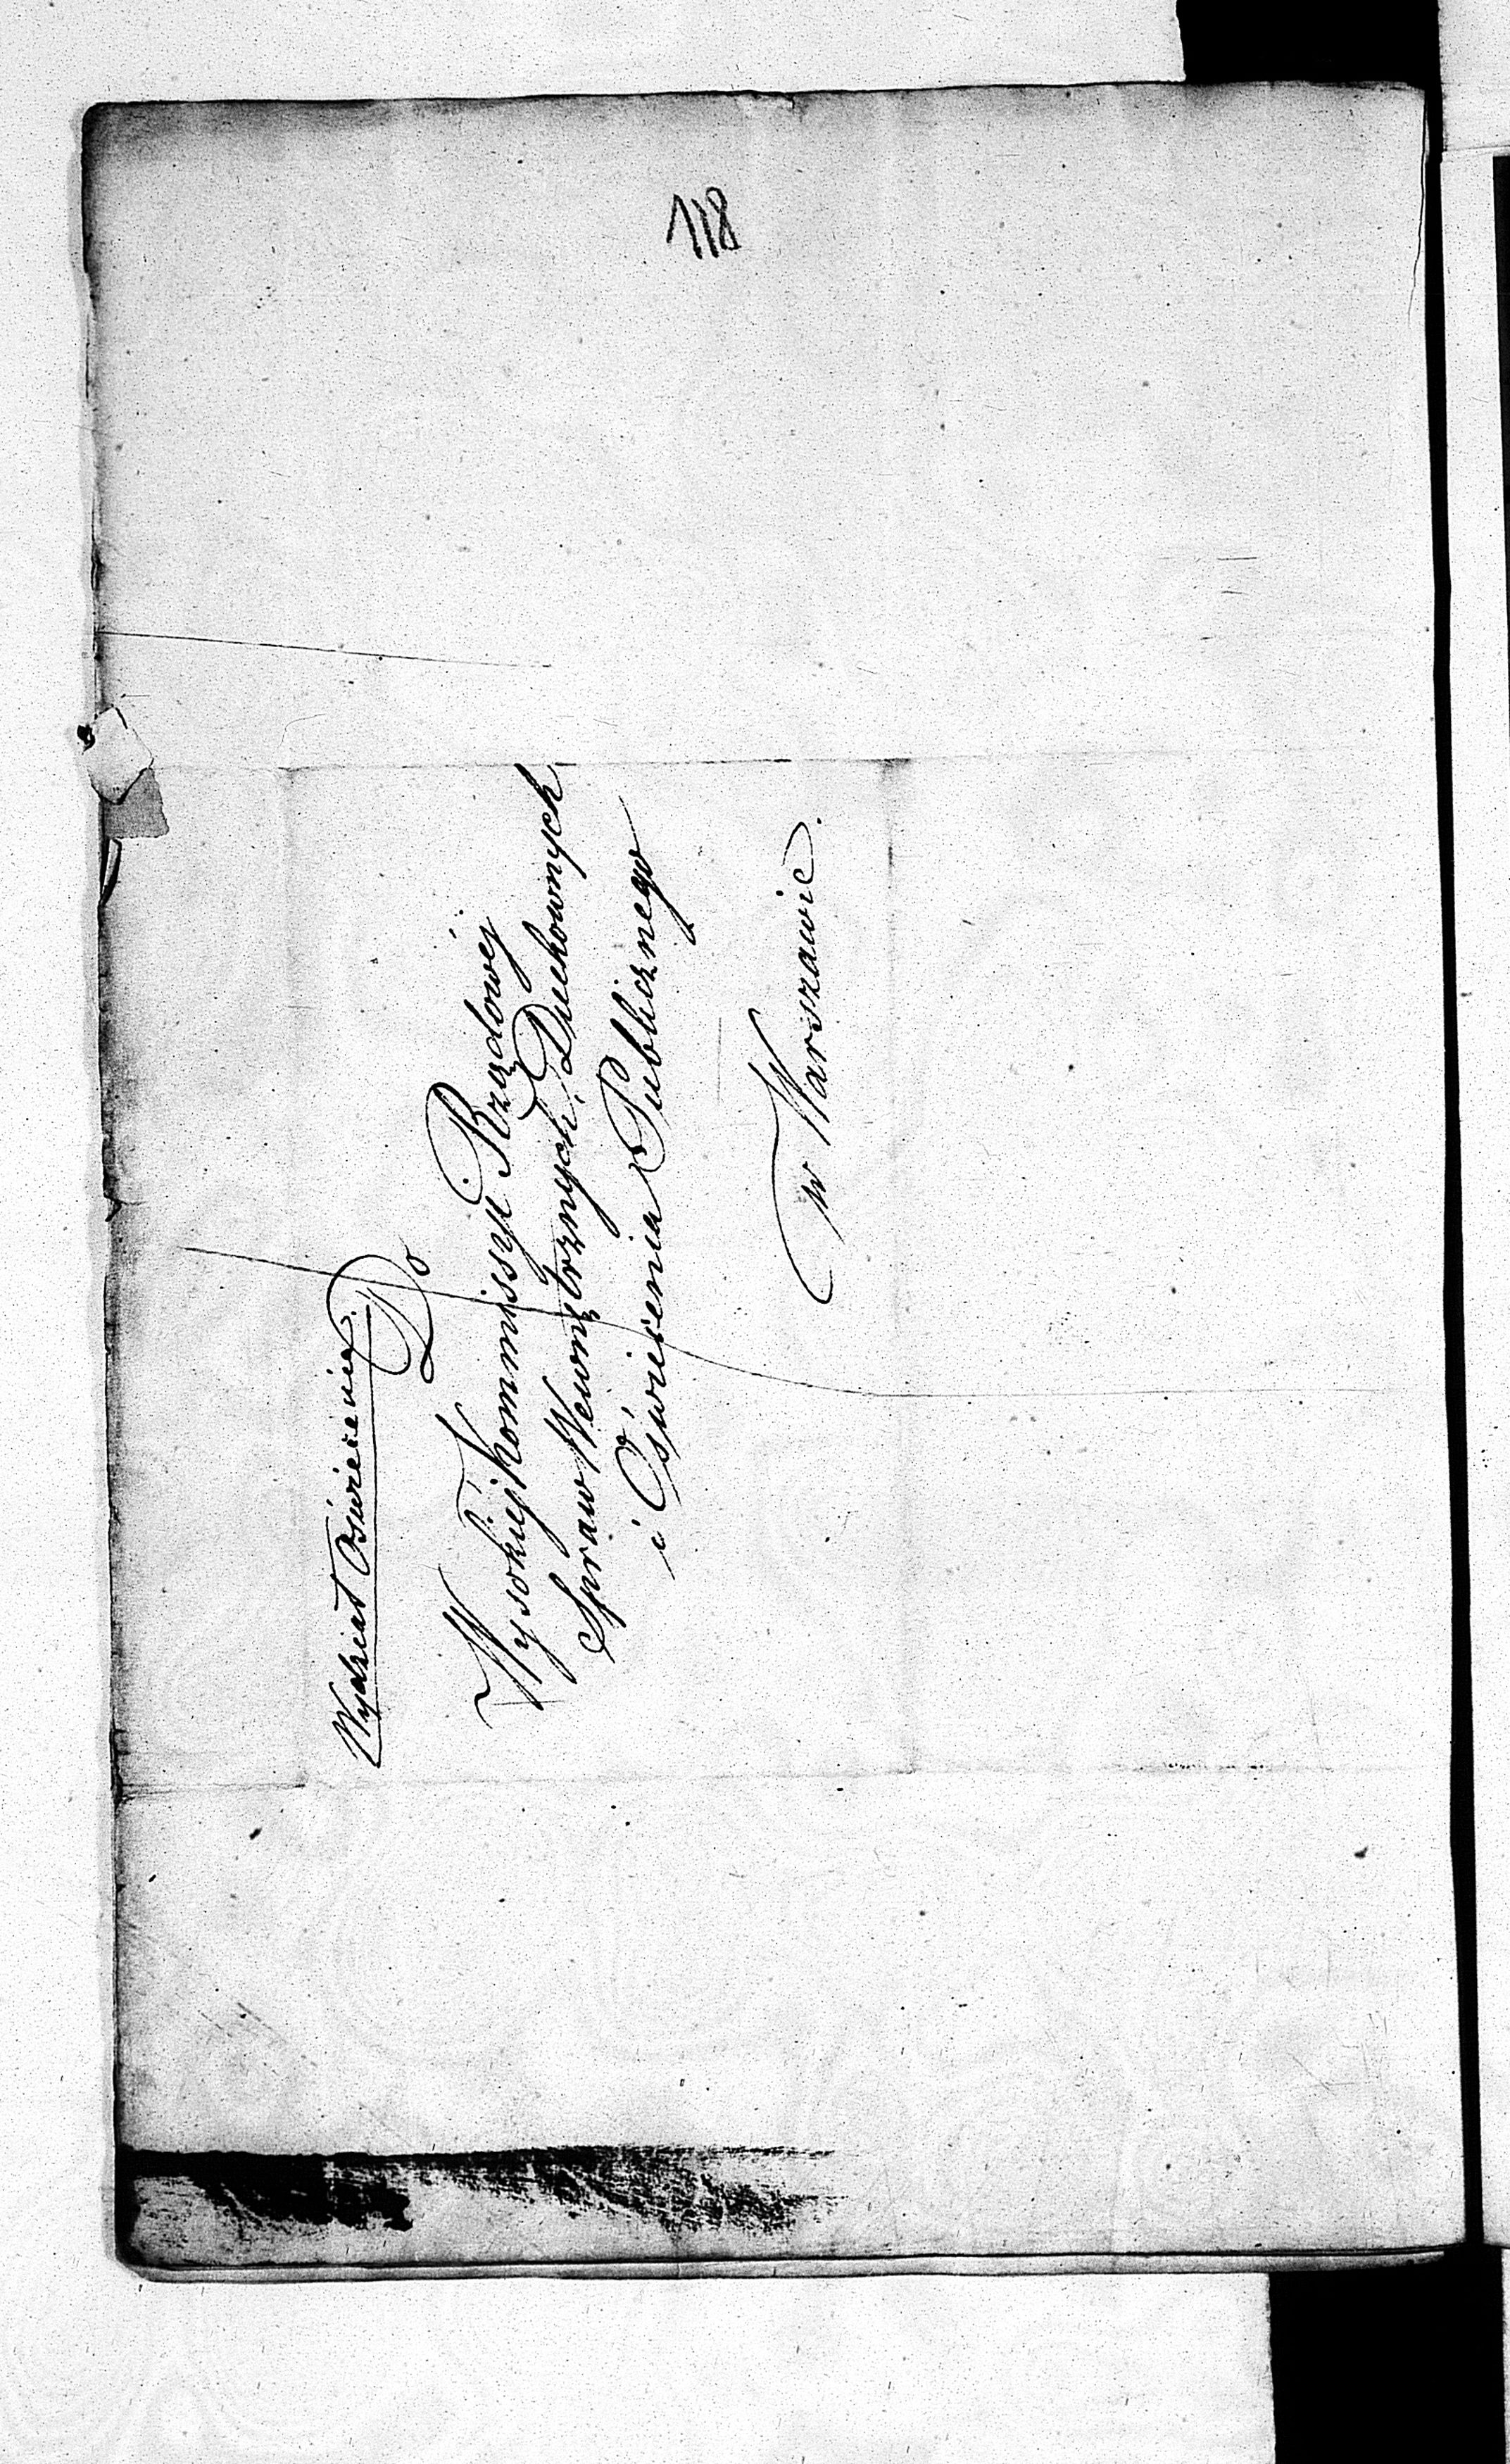 118
Wydział Oświecenia.
Do
Wysokiej Kommissyi Rządowéj
Spraw Wewnętrznych, Duchownych
i Oświecenia Publicznego
w Warszawie.